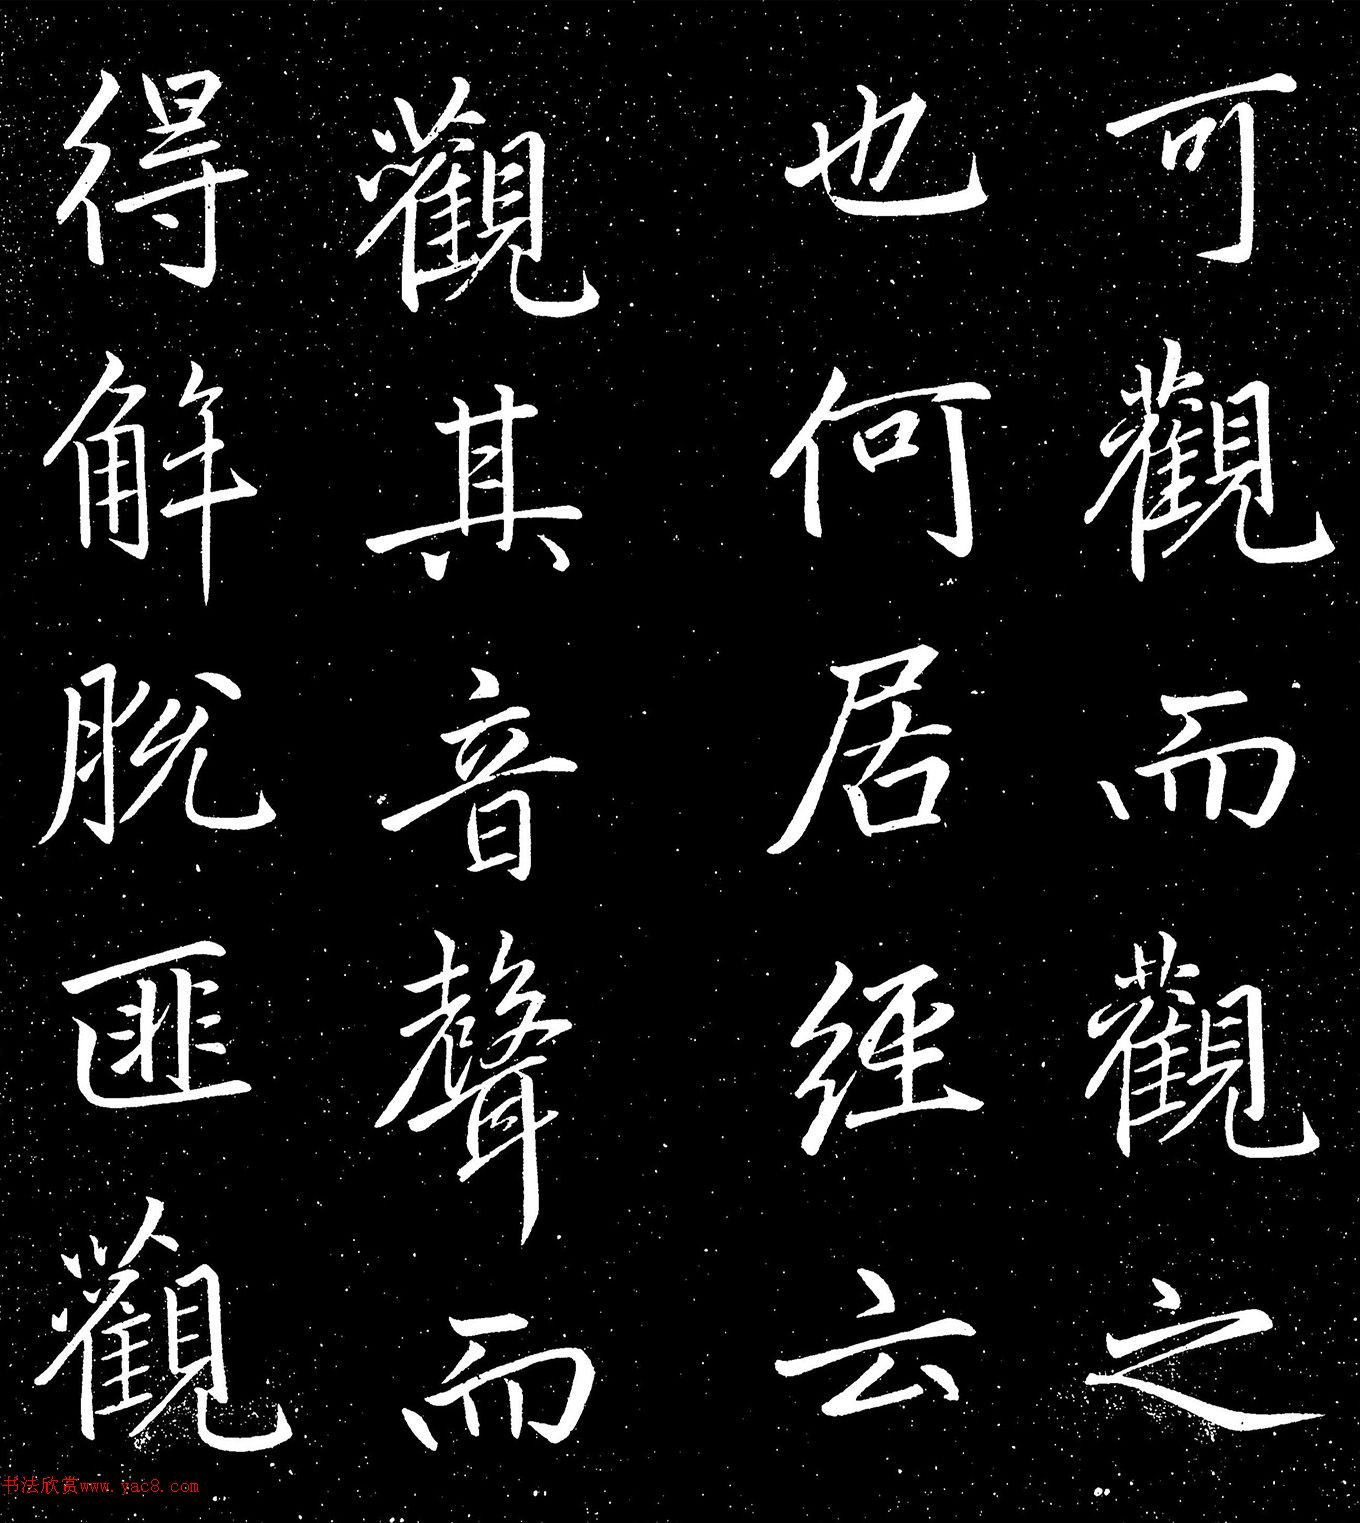 可觀而觀之
也何居經云
觀其音聲而
得解脫匪觀
书法欣赏www.yac8.com